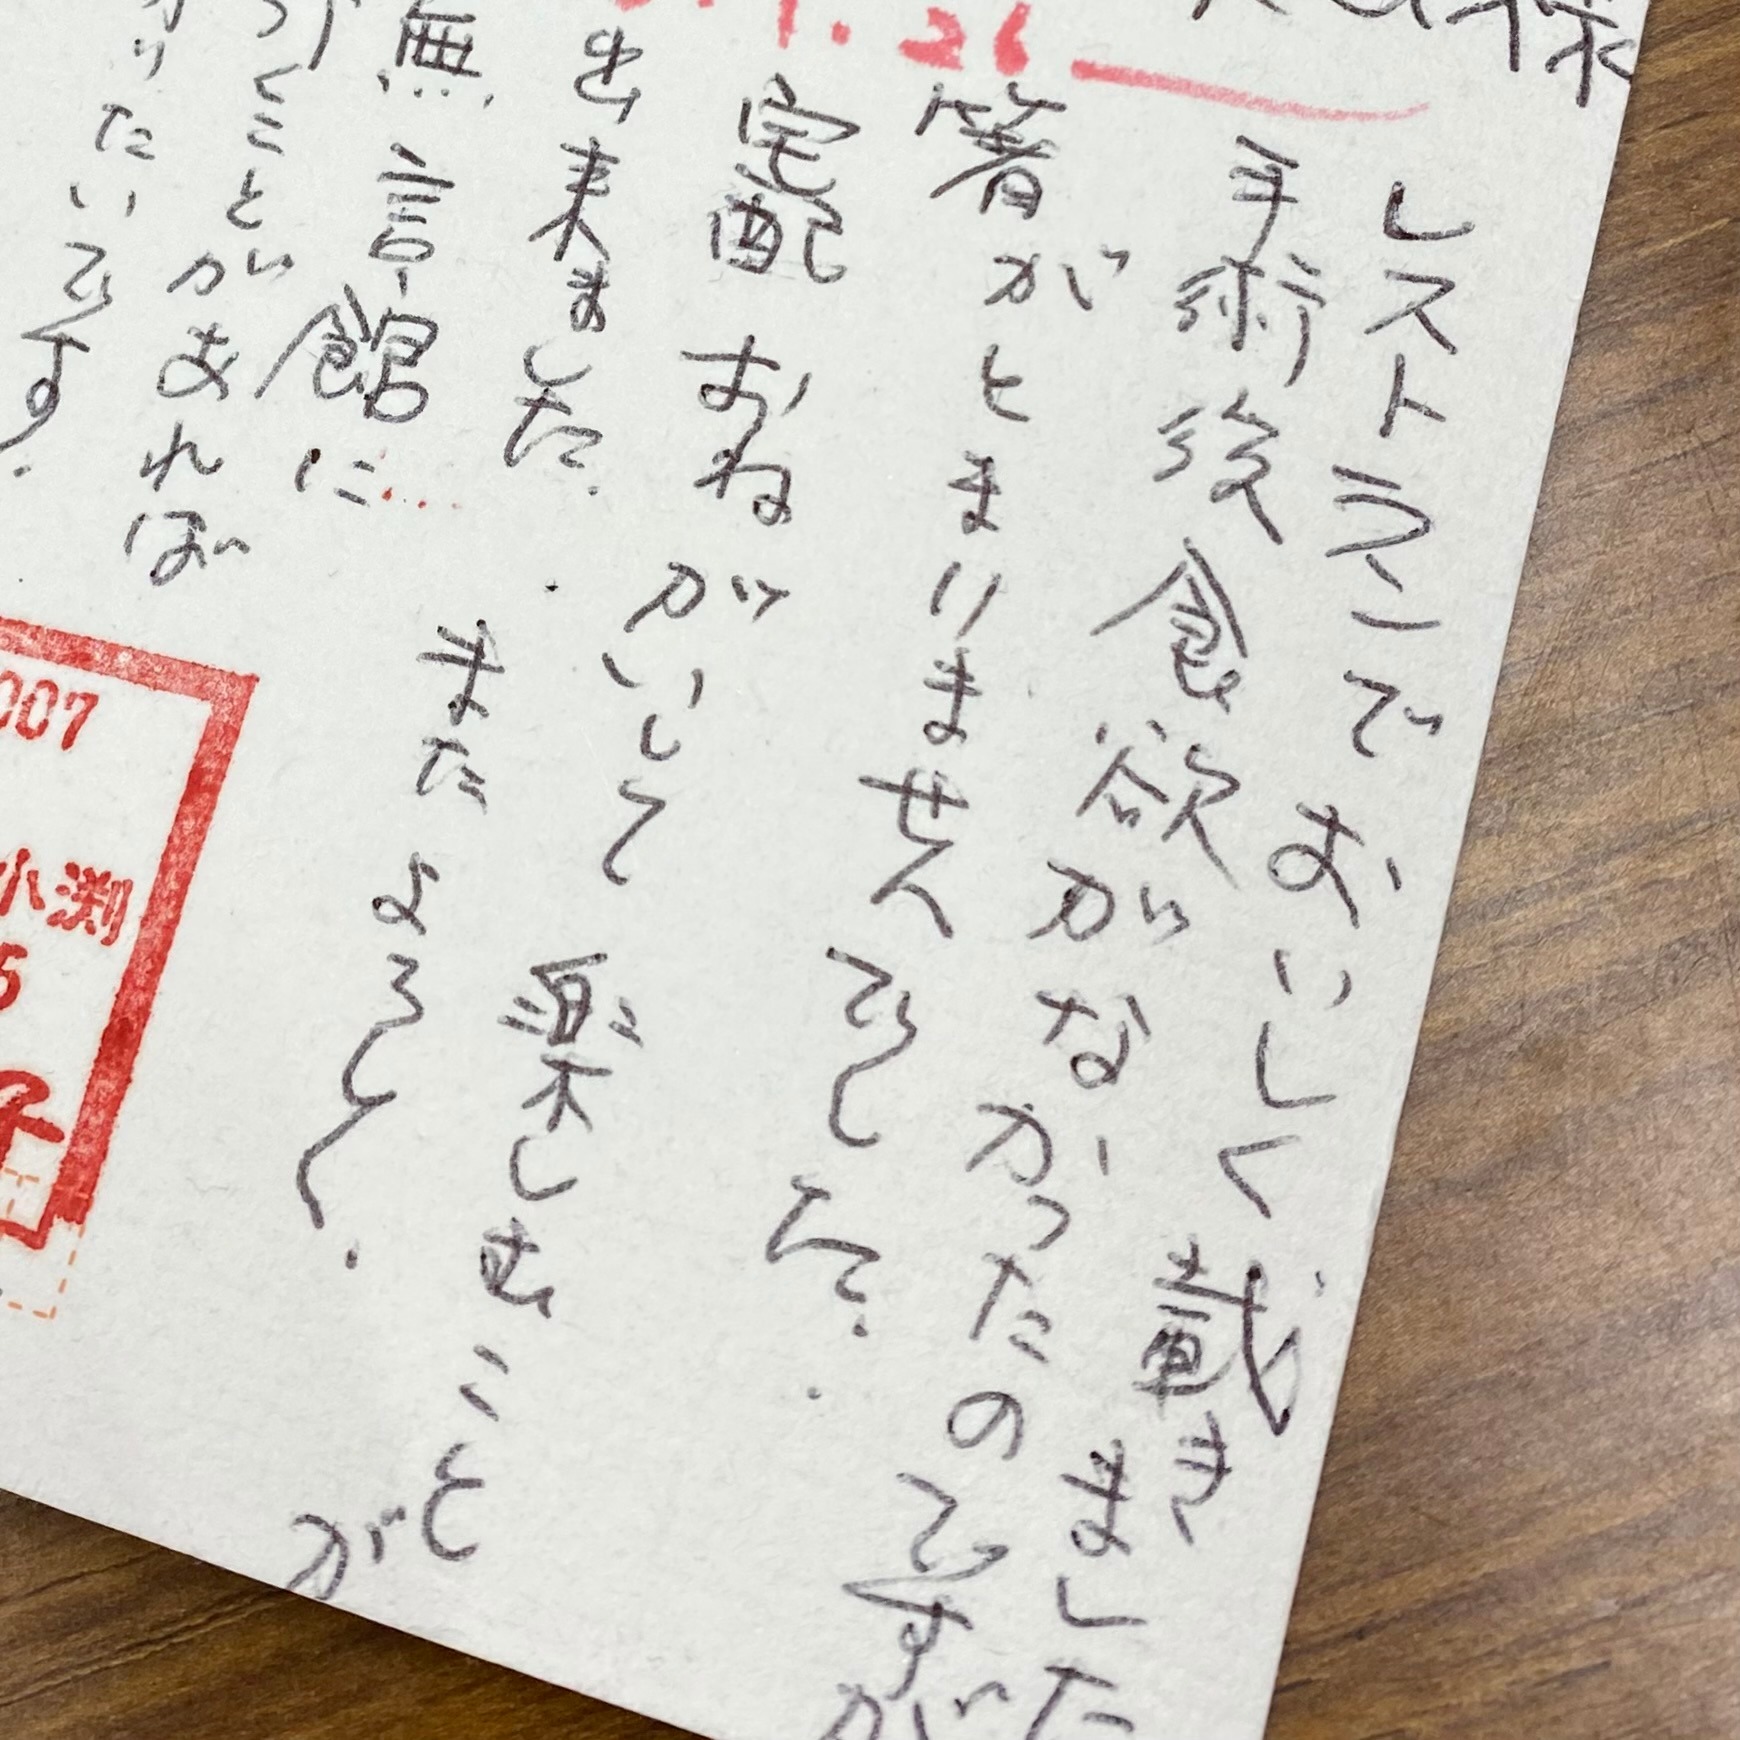 様
.26
レストランでおいしく載きました
手術後食欲がなかったのですが
箸がとまりませんでした.
宅配おねがいして楽しむことが
出来ました. またよろしく.
無言館に
くことがあれば
りたいです.
007
小渕
5